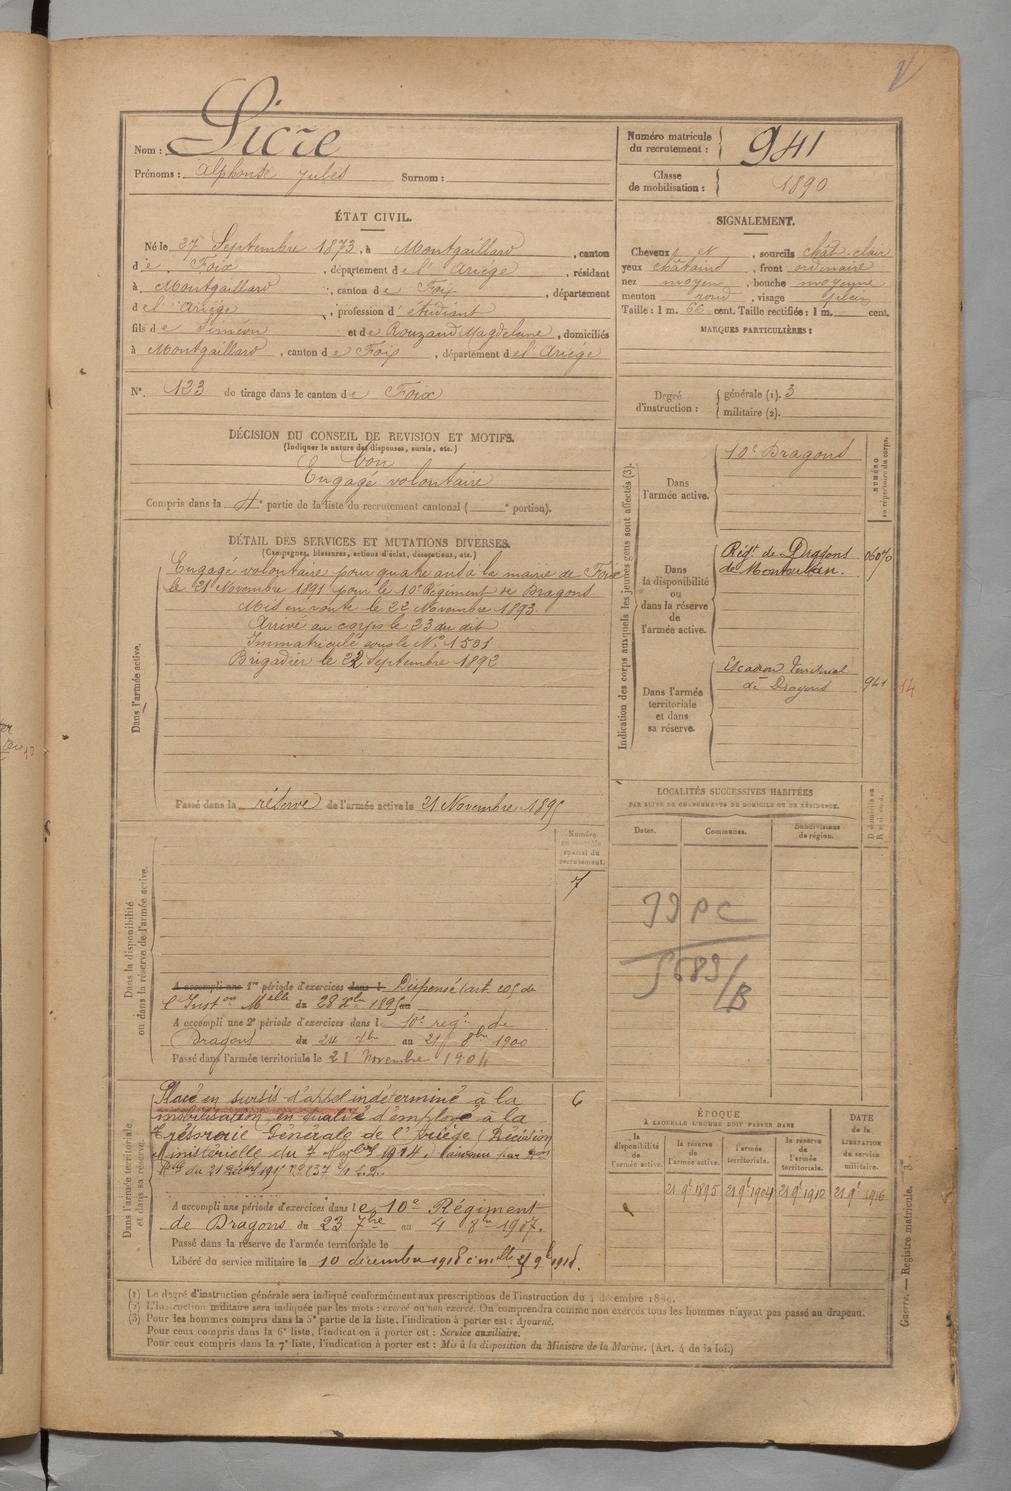 Nom : Sicre
Prénoms : Alphonse Jules Surnom :
Numéro matricule du recrutement : 941
Classe de mobilisation : 1890
ÉTAT CIVIL.
Né le 27 Septembre 1873, à Montgaillard, canton
de Foix, département de l'Ariège, résidant
à Montgaillard, canton de Foix, département
de l'Ariège, profession d'étudiant
fils de Siméon et de Rouzaud Magdelaine, domiciliés
à Montgaillard, canton de Foix, département de l'Ariège
N°. 123 de tirage dans le canton de Foix
SIGNALEMENT.
Cheveux et, sourcils chât. clair
yeux châtains, front ordinaire
nez moyen, bouche moyenne
menton rond, visage plein
Taille : 1 m. 66 cent. Taille rectifiée : 1 m. cent.
MARQUES PARTICULIÈRES :
Degré d'instruction : générale (1). 3
militaire (2).
DÉCISION DU CONSEIL DE REVISION ET MOTIFS.
(Indiquer la nature des dispenses, sursis, etc.)
bon
Engagé volontaire
Compris dans la 4e partie de la liste du recrutement cantonal ( e portion).
DÉTAIL DES SERVICES ET MUTATIONS DIVERSES.
(Campagnes, blessures, actions d'éclat, décorations, etc.)
Dans l'armée active.
Engagé volontaire pour quatre ans à la mairie de Foix
le 21 Novembre 1891 pour le 10e Régiment de Dragons
Mis en route le 22 Novembre 1893.
Arrivé au corps le 23 du dit
Immatriculé sous le N° 1501
Brigadier le 22 Septembre 1892
Passé dans la réserve de l'armée active le 21 Novembre 1895
Indication des corps auxquels les jeunes gens sont affectés (3).
NUMÉRO au répertoire du corps.
Dans l'armée active.
10e Dragons
Dans la disponibilité ou dans la réserve de l'armée active.
Régt. de Dragons
de Montauban.
Dans l'armée territoriale et dans sa réserve.
Escadron Territorial
de Dragons
941
14
LOCALITÉS SUCCESSIVES HABITÉES
PAR SUITE DE CHANGEMENTS DE DOMICILE OU DE RÉSIDENCE.
Dates. Communes. Subdivisions de région.
Dans la disponibilité ou dans la réserve de l'armée active.
Numéro au contrôle spécial du recrutement.
7
A accompli une 1re période d'exercices dans l Dispensé (art. de
l'Inston Melle du 28 Xbre 1895 au
A accompli une 2e période d'exercices dans le 10e regt. de
Dragons du 24 7bre au 21 8bre 1900
Passé dans l'armée territoriale le 21 Novembre 1904
Dans l'armée territoriale et dans sa réserve.
6
Placé en sursis d'appel indéterminé à la
mobilisation en qualité d'employé à la
Trésorerie Générale de l'Ariège (Décision
Ministérielle du 7 Novbre 1914.
A accompli une période d'exercices dans le 10e Régiment
de Dragons du 23 7bre au 4 8bre 1907.
Passé dans la réserve de l'armée territoriale le
Libéré du service militaire le 10 décembre 1918
ÉPOQUE
À LAQUELLE L'HOMME DOIT PASSER DANS
DATE de la LIBÉRATION du service militaire.
la disponibilité de l'armée active. la réserve de l'armée active. l'armée territoriale. la réserve de l'armée territoriale.
21 9e 1895 21 9e 1904 21 9e 1910 21 9e 1916
(1) Le degré d'instruction générale sera indiqué conformément aux prescriptions de l'instruction du 4 décembre 1889.
(2) L'instruction militaire sera indiquée par les mots : exercé ou non exercé. On comprendra comme non exercés tous les hommes n'ayant pas passé au drapeau.
(3) Pour les hommes compris dans la 5e partie de la liste, l'indication à porter est : Ajourné.
Pour ceux compris dans la 6e liste, l'indication à porter est : Service auxiliaire.
Pour ceux compris dans la 7e liste, l'indication à porter est : Mis à la disposition du Ministre de la Marine. (Art. 4 de la loi.)
Guerre. — Registre matricule. 3